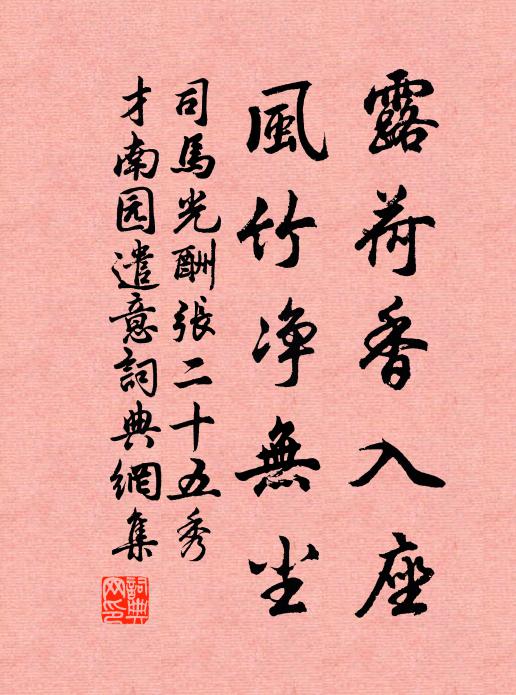 露荷香入座
風竹净無尘
司馬光酬張二十五秀
才南园遣意詞典網集
詞典
网印